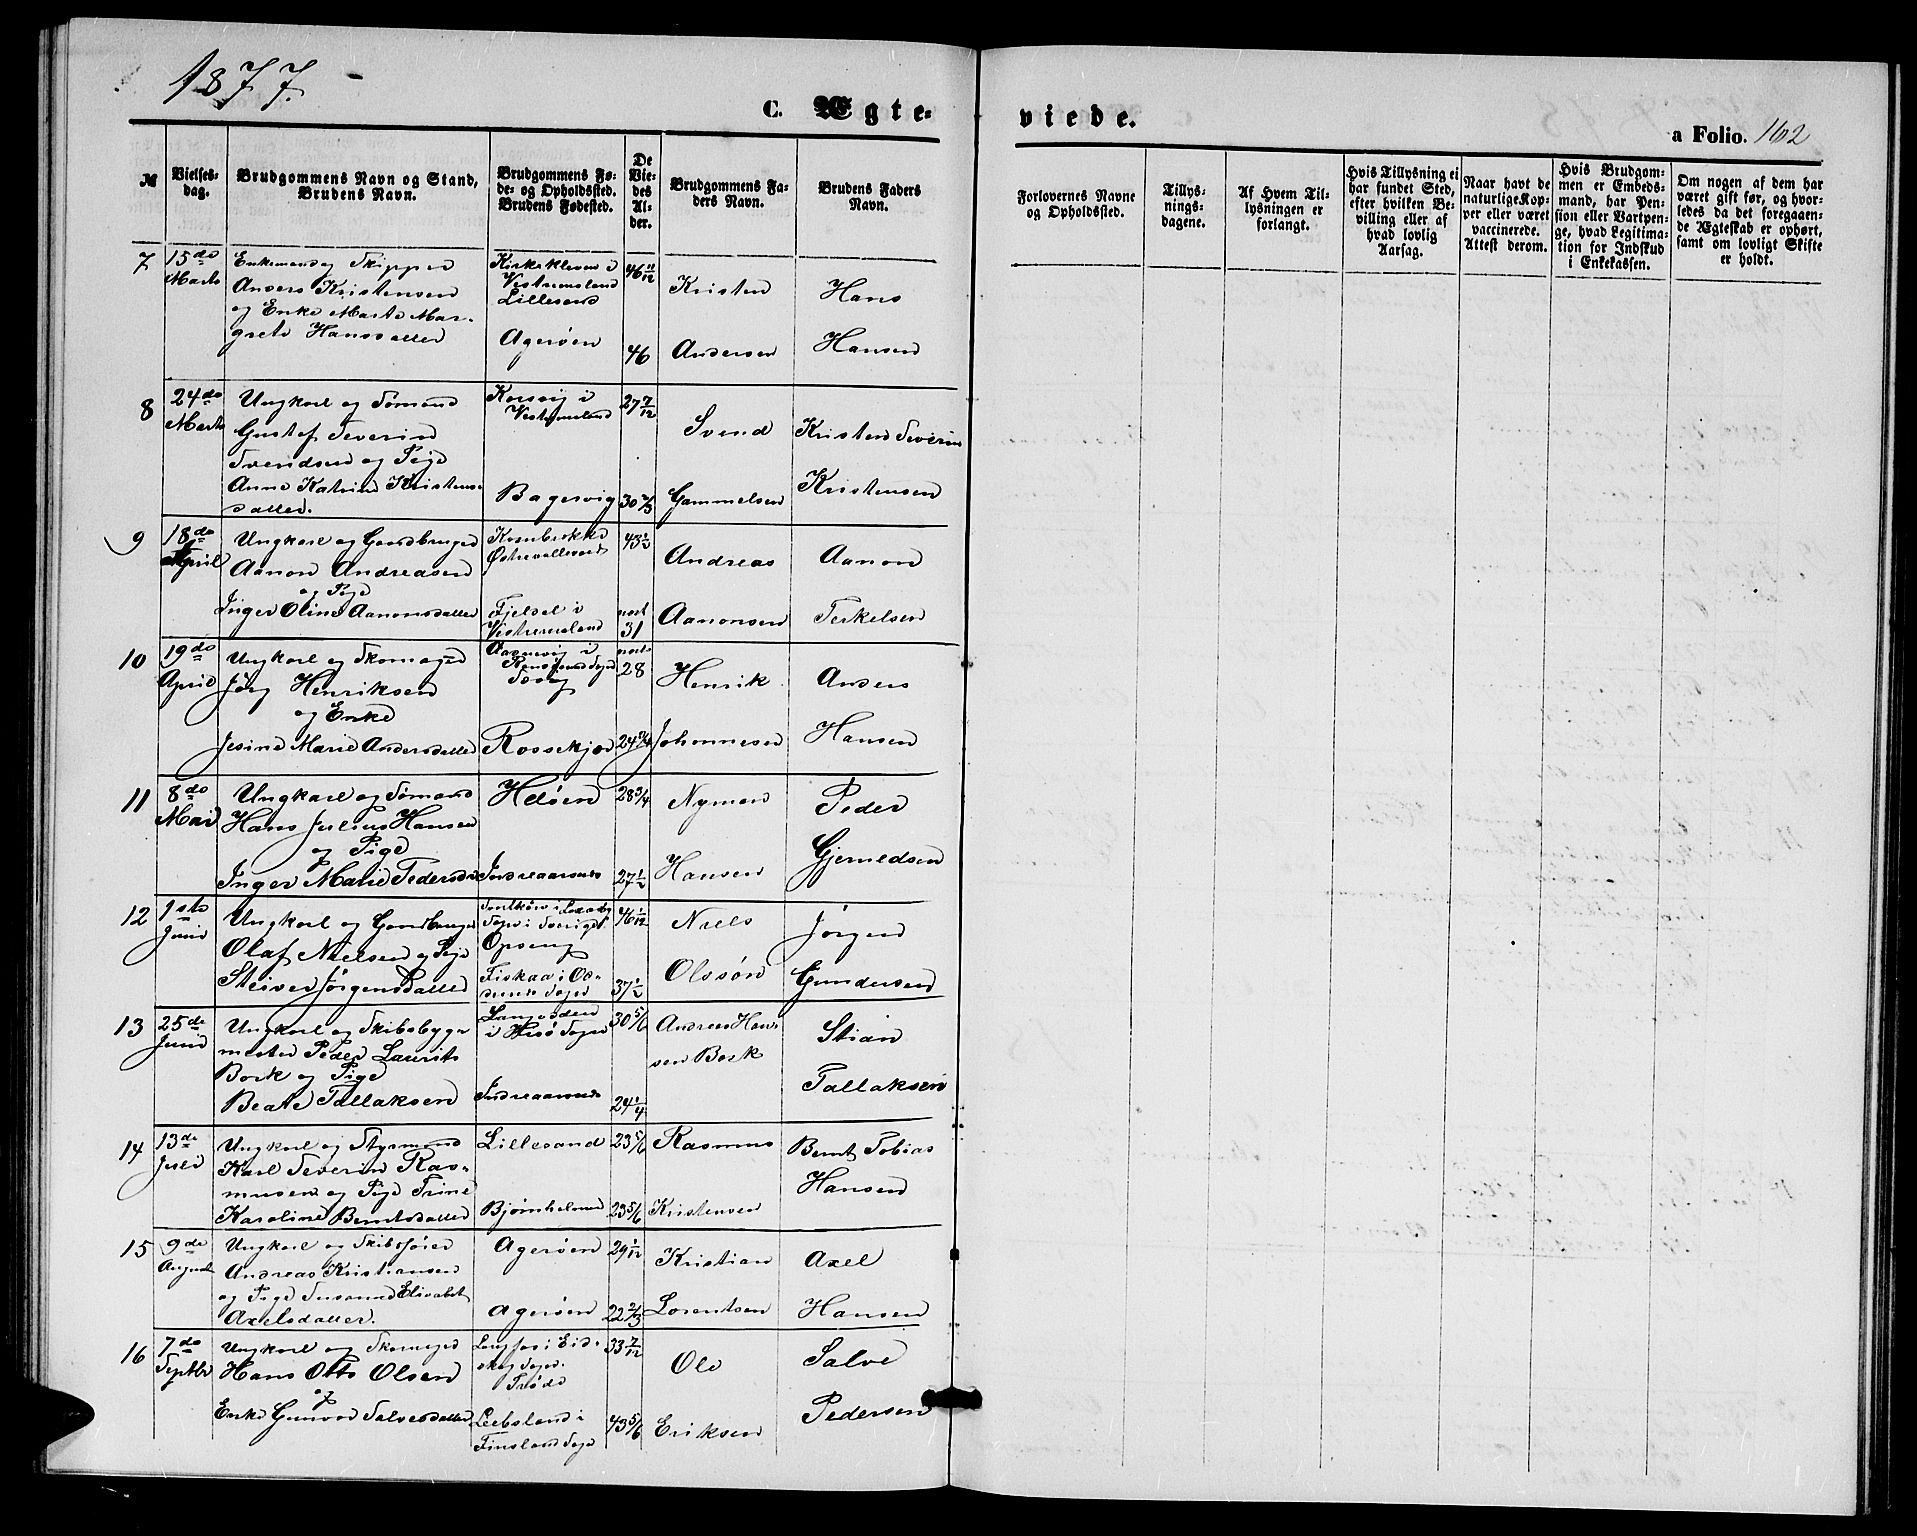 1877.
C. Ægte-
viede.
a Folio. 162
№
Vielses-
dag.
Brudgommens Navn og Stand,
Brudens Navn.
Brudgommens Fø-
de- og Opholdssted.
Brudens Fødested.
De
Vie-
des
Al-
der.
Brudgommens Fa-
ders Navn.
Brudens Faders
Navn.
Forlovernes Navne
og Opholdssted.
Tillys-
nings-
dagene.
Af Hvem Til-
lysningen er
forlangt.
Hvis Tillysning ei
har fundet Sted,
efter hvilken Be-
villing eller af
hvad lovlig
Aarsag.
Naar havt de
naturlige Kop-
per eller været
vaccinerede.
Attest derom.
Hvis Brudgom-
men er Embeds-
mand, har Pen-
sion eller Vartpen-
ge, hvad Legitima-
tion for Indskud
i Enkekassen.
Om nogen af dem har
været gift før, og hvor-
ledes da det foregaaen-
de Ægteskab er ophørt,
samt om lovligt Skifte
er holdt.
7
15de
Marts
Enkemand og Skipper
Anders Kristensen
og Enke Marte Mar-
grete Hansdatter
Kirkekleven i
Vestremoland
Lillesand
Agerøen
46 11/12
46
Kristen
Andersen
Hans
Hansen
8
24de
Marts
Ungkarl og Sømand
Gustaf Severin
Svendsen og Pige
Anne Katrine Kristens-
datter.
Korsvig i
Vestremoland
Bagersvig
27 7/12
30 2/3
Svend
Gammelsen
Kristen Severin
Kristensen
9
18de
April
Ungkarl og Gaardbruger
Aanon Andreasen
og Pige
Inger Oline Aanonsdatter
Østrevallesverd
Fjeldal i
Vestremoland
43 1/2
næst
31
Andreas
Aanonsen
Aanon
Terkelsen
10
19de
April
Ungkarl og Skomager
Jørg Henriksen
og Enke
Jesine Marie Andersdatter
Rossekjær
28
24 3/4
Henrik
Johannesen
Anders
Hansen
11
8de
Mai
Ungkarl og Sømand
Hans Julius Hansen
og Pige
Inger Marie Pedersdr
Heløen
Indreaarsnes
28 3/4
27 1/2
Nyman
Hansen
Peder
Gjermedsen
12
1ste
Juni
Ungkarl og Gaardbruger
Olaf Nielsen og Pige
Steiner Jørgensdatter
Sogn i Sverige
Opseng
Fiskaa i Od-
dernes Sogn
46 1/12
37 1/2
Niels
Olssøn
Jørgen
Gundersen
13
25de
Juni
Ungkarl og Skibsbyg-
mester Peder Laurits
Bork og Pige
Beate Tallaksen
i Hisø Sogn
Indreaarsnes
30 5/6
24 1/4
Andreas Han-
sen Bork
Stian
Tallaksen
14
13de
Juli
Ungkarl og Styrmand
Karl Severin Ras-
mussen og Pige Trine
Karoline Berntsdatter
Lillesand
Bjørnholmen
23 5/6
23 5/6
Rasmus
Kristensen
Bernt Tobias
Hansen
15
9de
August
Ungkarl og Skibsfører
Andreas Kristiansen
og Pige Susanne Elisabet
Axelsdatter.
Agerøen
Agerøen
29 1/12
22 2/3
Kristian
Lorentsen
Axel
Hansen
16
7de
Septbr
Ungkarl og Skomager
Hans Otto Olsen
og
Enke Gunvor Salvesdatter
Langfos i Eid-
skog Sogn.
Leebsland i
Finsland Sogn
33 7/12
43 5/6
Ole
Eriksen
Salve
Pedersen